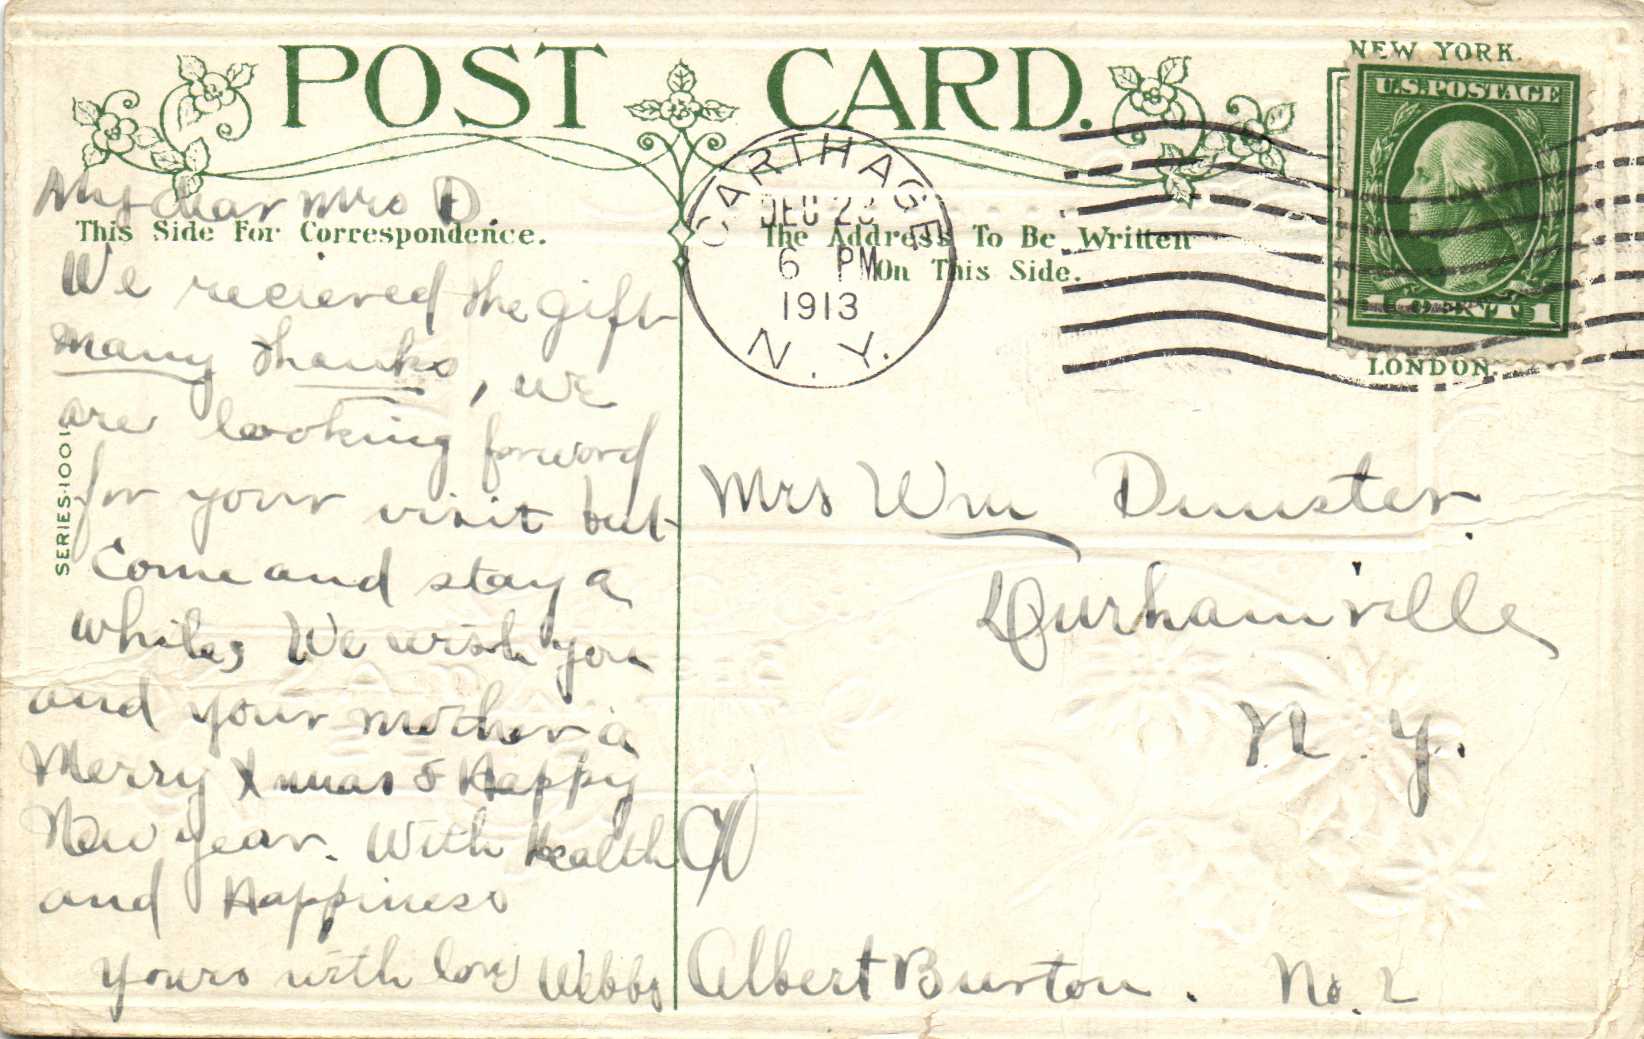 POST CARD.
NEW YORK.
U.S. POSTAGE
1 CENT 1
LONDON.
CARTHAGE
DEC 23
6 PM
1913
N. Y.
This Side For Correspondence.
The Address To Be Written
On This Side.
SERIES 1001
My dear Mrs D.
We recieved the gift
many thanks, we
are looking forword
for your visit but
Come and stay a
while, We wish you
and your mother a
Merry Xmas & Happy
New year. With Health
and Happiness
yours with love Webbs
Mrs Wm Dunster.
Durhamville
N. Y.
Albert Burton. No. 2